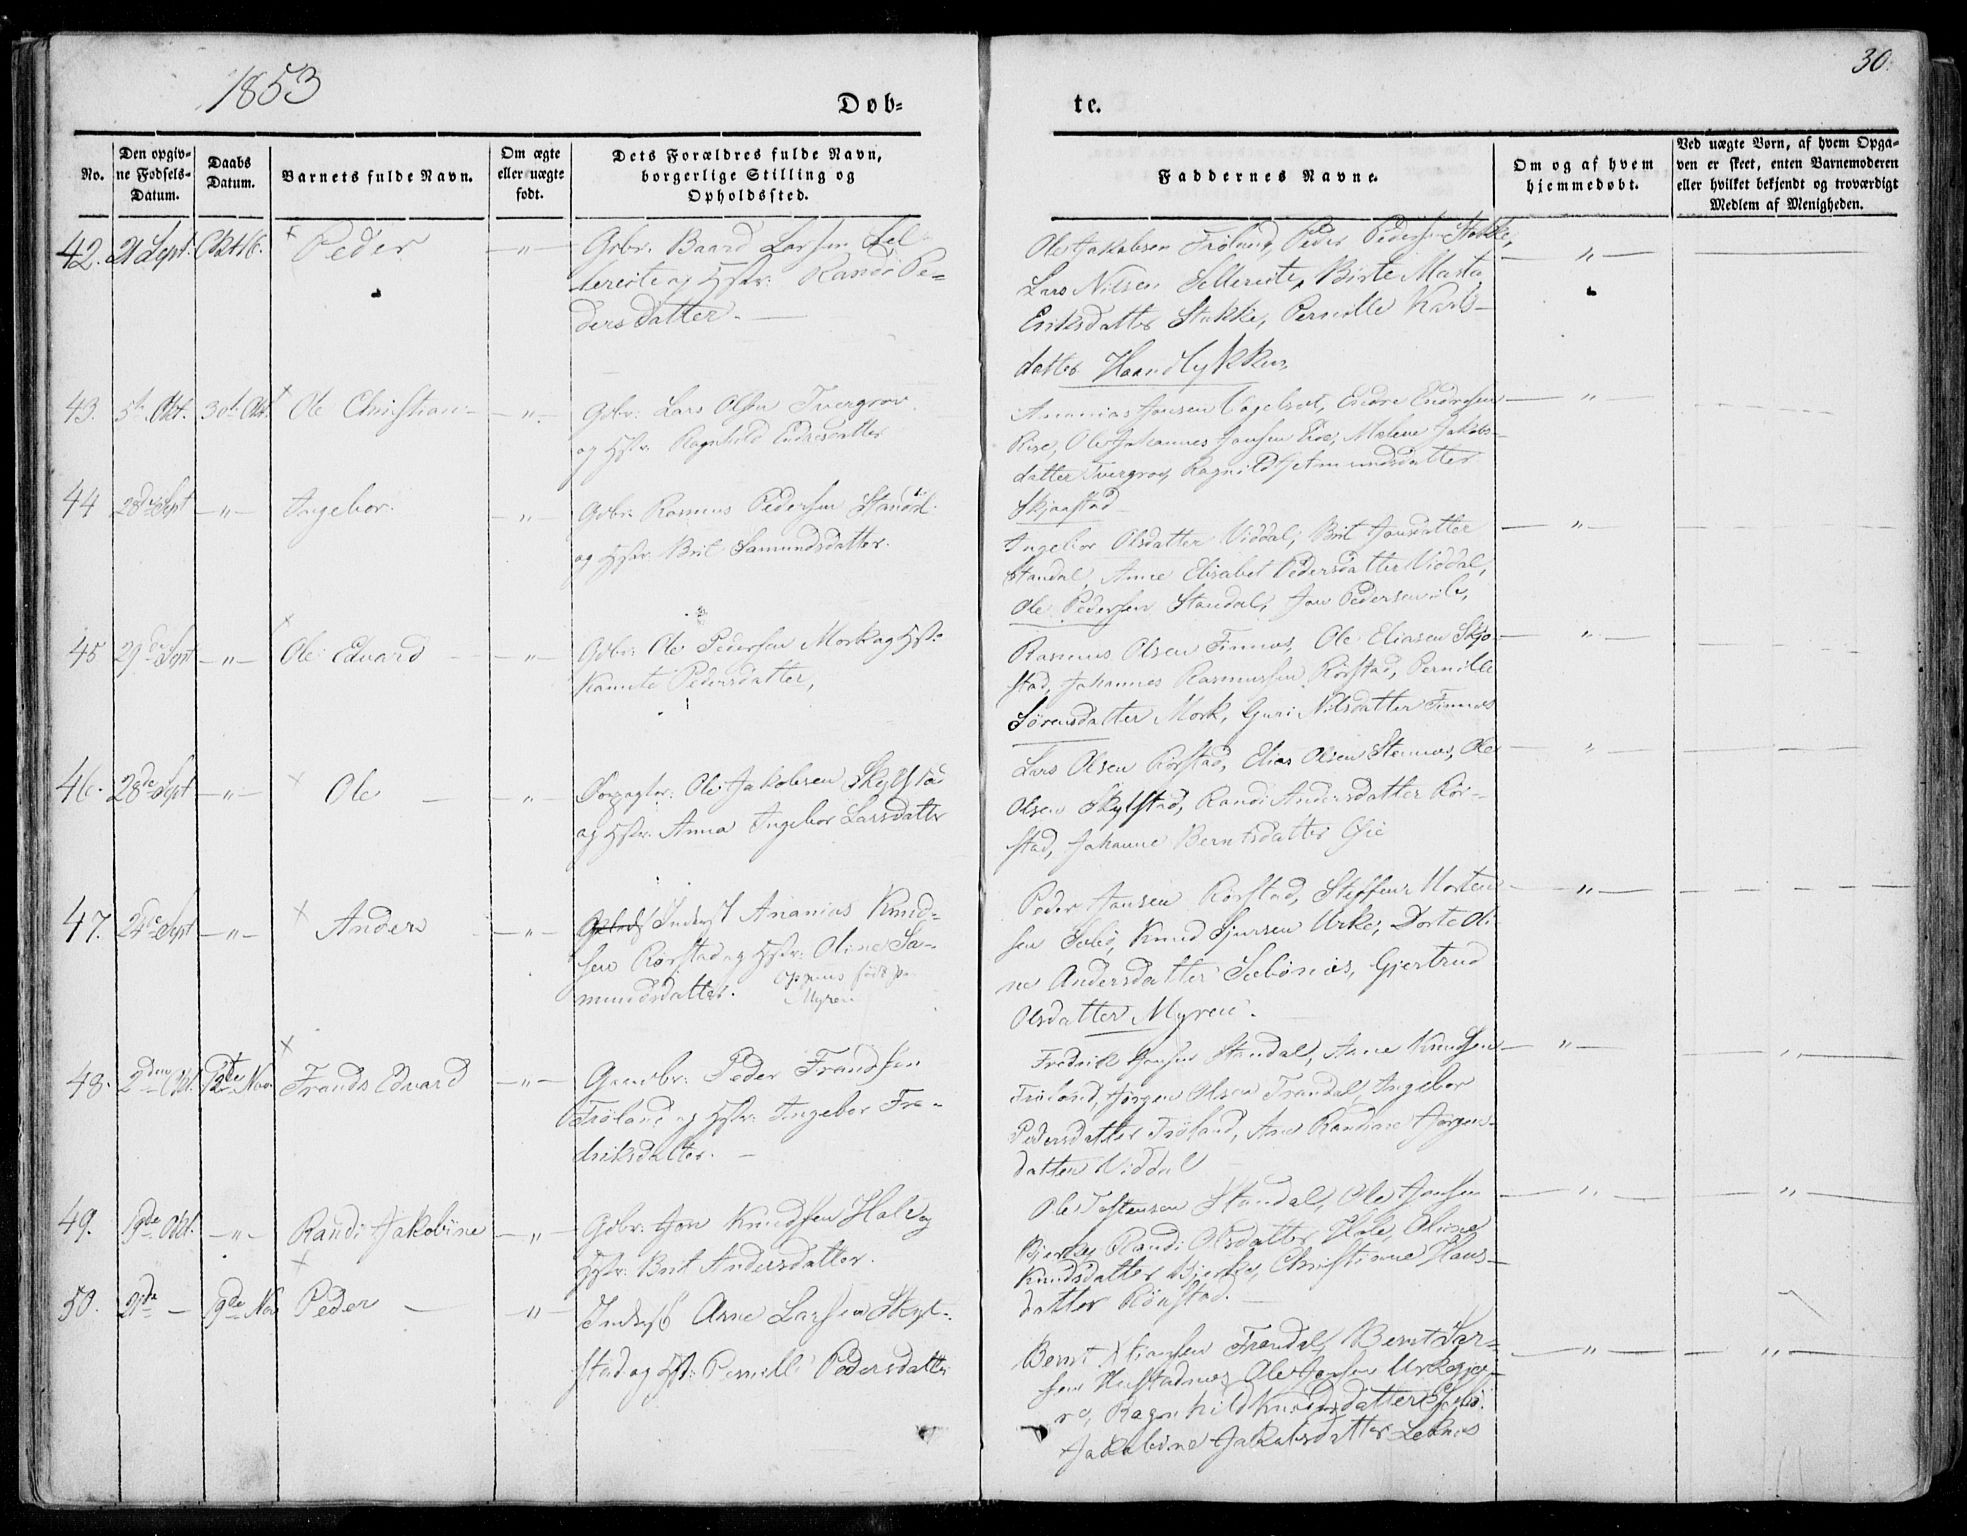 1853
30.
Døb=
te.
No.
Den opgiv=
ne Fødsels=
Datum.
Daabs
Datum.
Barnets fulde Navn.
Om ægte
eller uægte
født.
Dets Forældres fulde Navn,
borgerlige Stilling og
Opholdssted.
Faddernes Navne.
Om og af hvem
hjemmedøbt.
Ved uægte Børn, af hvem Opga=
ven er skeet, enten Barnemoderen
eller hvilket bekjendt og troværdigt
Medlem af Menigheden.
42. 21 Sept. Okt 16. Peder — " — Gbr: Baard Larsen Sel
lereite og Hstr: Randi Pe-
dersdatter. —
Ole Jakobsen Trøland, Peder Pedersen Stokke,
Lars Nilsen Sellereite, Birte Marta
Eriksdatter Stokke, Pernille Karls-
datter
43. 5te Okt. 30te Okt. Ole Christian — " — Gdbr: Lars Olsen Tvergrov
og Hstr: Ragnhild Endresdatter
Ananias Jonsen Vogelset, Endre Endresen
Rise, Ole Johannes Jonsen Øie, Malene Jakobs-
datter Tvergrov, Ragnild Amundsdatter
Skjaastad
44 28de Sept — " — Ingebor. — " — Gdbr: Rasmus Pedersen Standal
og Hstr: Brit Samundsdatter.
Ingebor Olsdatter Viddal, Brit Jonsdatter
Standal, Anne Elisabet Pedersdatter Viddal,
Ole Pedersen Standal, Jon Pedersen ib,
45 29de Sept — " — Ole Edvard — " — Gdbr: Ole Pedersen Mork og Hstr:
Kanute Pedersdatter,
Rasmus Olsen Finnæs, Ole Eliasen Skjo-
stad, Johannes Rasmussen Rørstad, Pernille
Sørensdatter Mork, Guri Nilsdatter Finnæs
46. 28de Sept — " — Ole — " — Ole Jakobsen Skylstad
og Hstr: Anna Ingebor Larsdatter
Lars Olsen Rørstad, Elias Olsen Stennæs, Ole
Olsen Skylstad, Randi Andersdatter Rør-
stad, Johanne Berntsdatter Øie
47. 24de Sept — " — Anders — " — Inderst Ananias Knud-
sen Rørstad og Hstr: Oline Sa-
mundsdatter.
Myren
Peder Jansen Rørstad, Steffen Morten
sen Sæbø, Knud Sjursen Urke, Dorte Oli-
ne Andersdatter Sæbønæs, Gjertrud
Olsdatter Myren.
48. 2den Okt. 12te Nov. Frands Edvard — " — Gaardbr: Peder Frandsen
Trøland og Hstr: Ingebor Fre-
driksdatter. —
Fredrik Jonsen Standal, Arne Knudsen
Trøland, Jørgen Olsen Trandal, Ingebor
Pedersdatter Trøland, Ane Randine Jørgens-
datter Viddal
49. 19de Okt. — " — Randi Jakobine — " — Gdbr: Jon Knudsen Hole og
Hstr: Brit Andersdatter.
Ole Tostensen Standal, Ole Jonsen
Bjerke, Randi Olsdatter Hole, Oline
Knudsdatter Bjerke, Christiane Hans-
datter Rørstad. —
50. 21de — 19de Nov Peder — " Inderst Arne Larsen Skyl-
stad og Hst: Pernille Pedersdatter
Bernt Trandal, Bernt Lar-
sen Hustadnæs, Ole Jensen Urkegje-
re, Ragnhild Knudsdatter
Jakobine Jakobsdatter Leknes